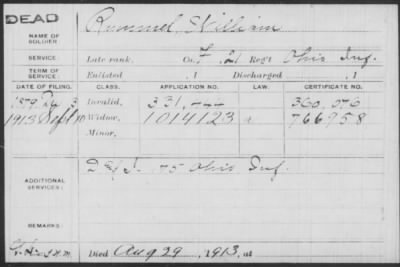 DEAD
NAME OF SOLDIER: Rummel, William
SERVICE: Late rank, Co. F, 21 Reg't Ohio Inf.
TERM OF SERVICE: Enlisted , 1 Discharged , 1
DATE OF FILING. CLASS. APPLICATION NO. LAW. CERTIFICATE NO.
1879 Invalid, 331,--- 360,076
1913 Sept 10 Widow, 1014123 766958
Minor,
ADDITIONAL SERVICES: D 175 Ohio Inf.
REMARKS:
Died Aug 29, 1913, at